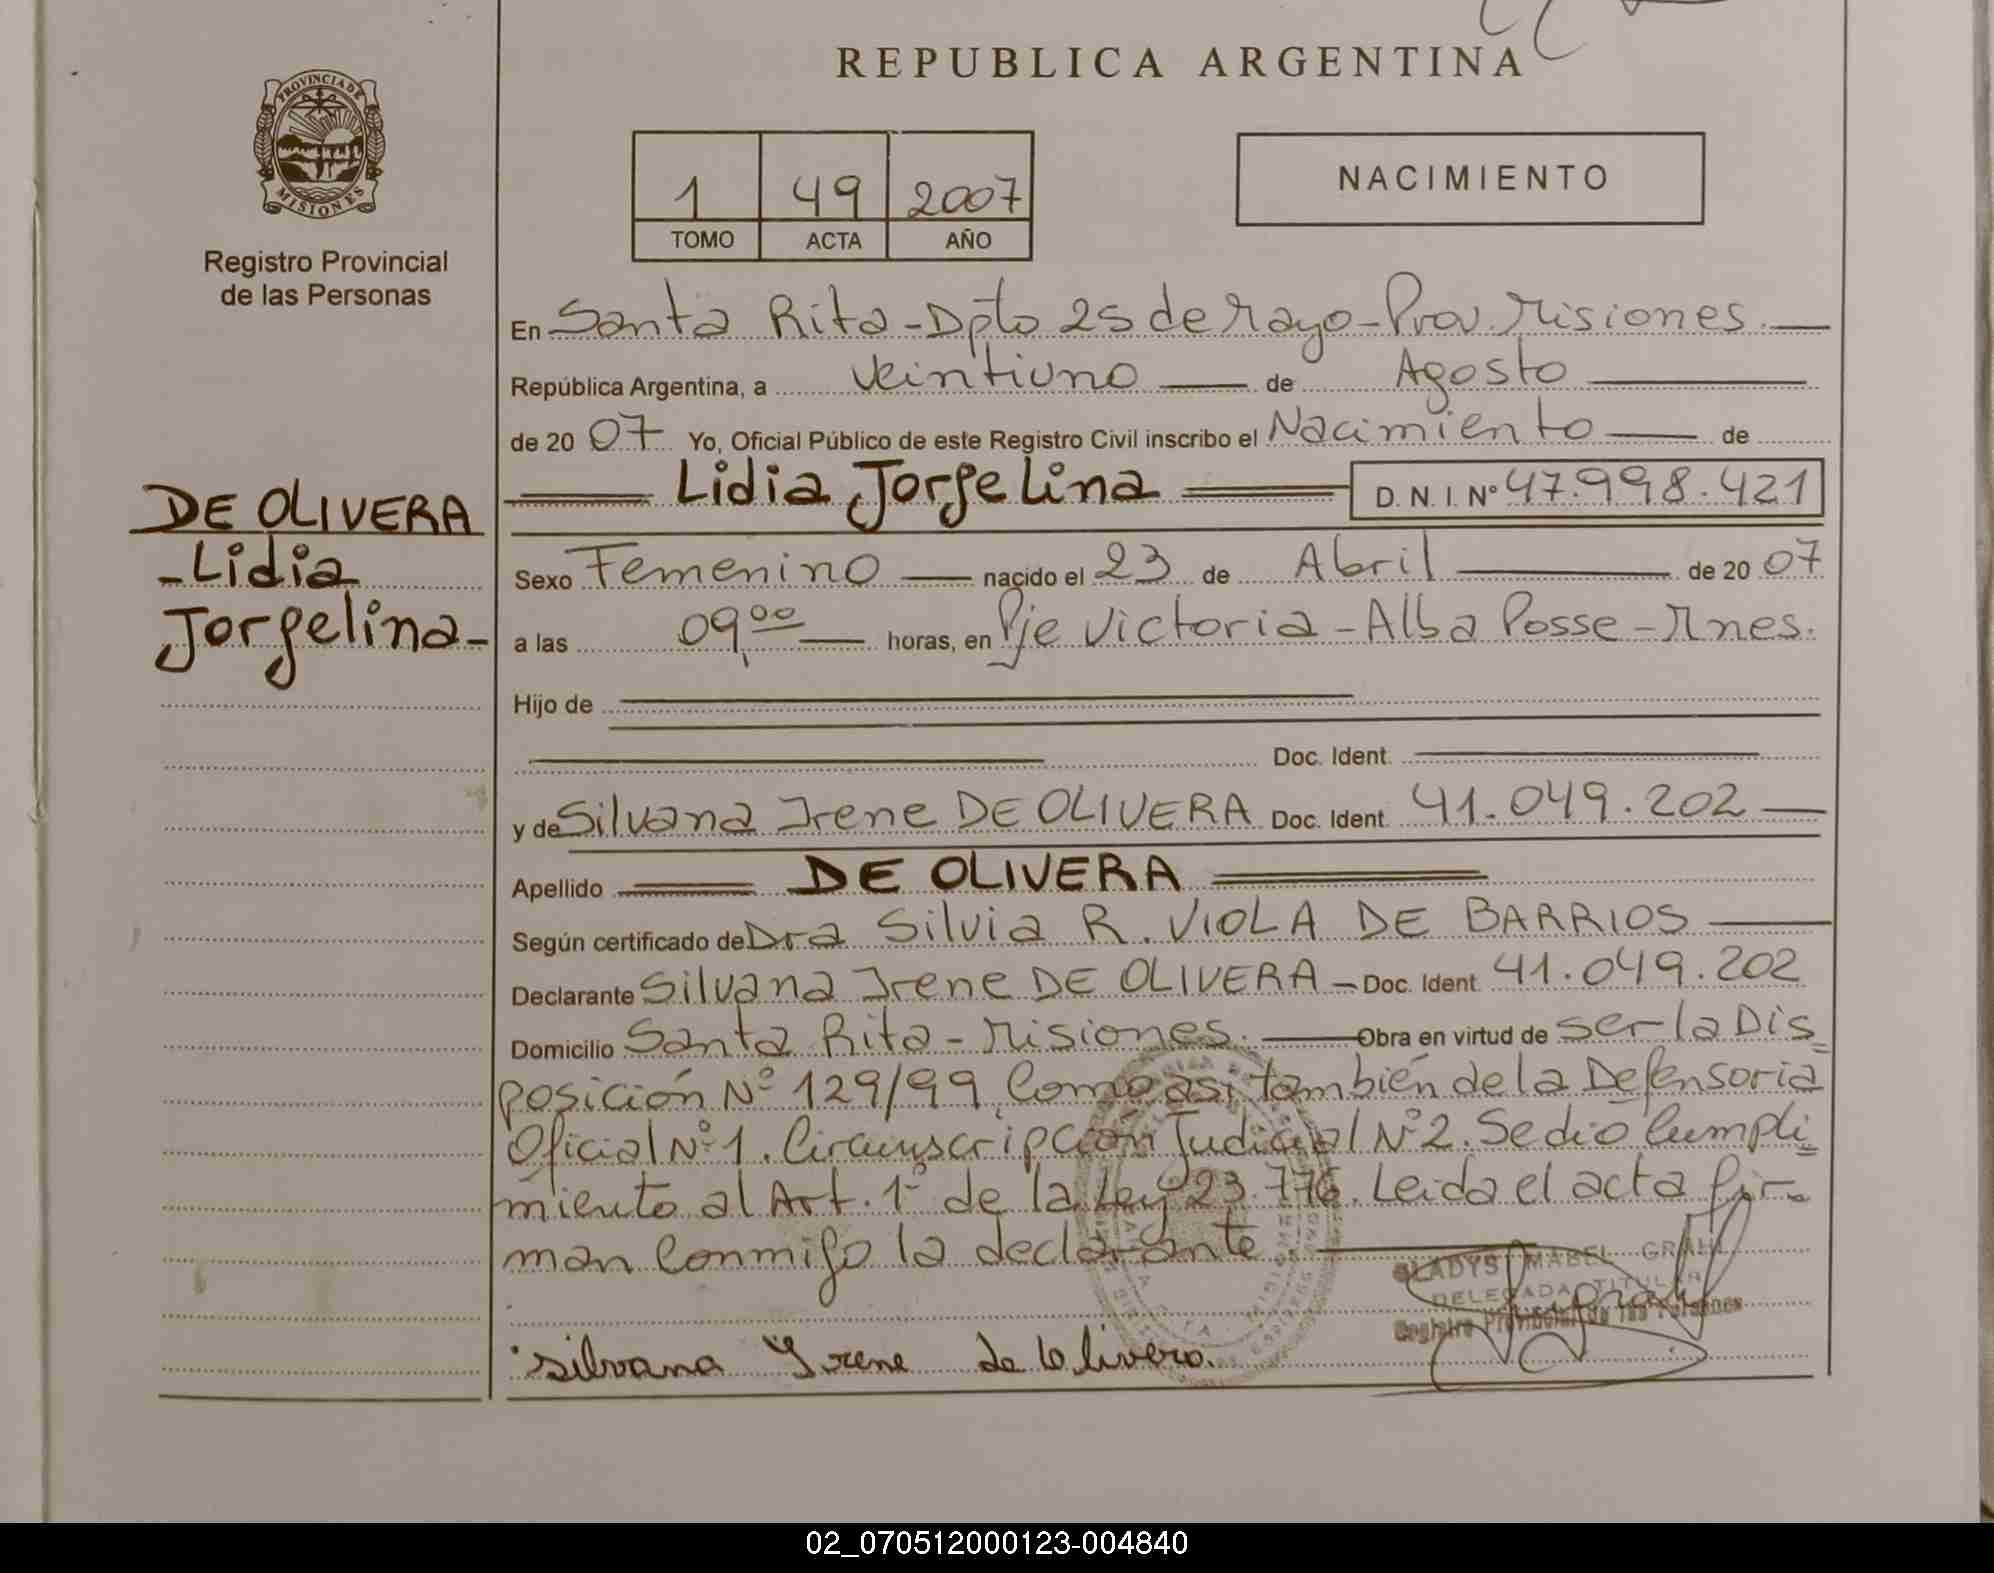 REPUBLICA ARGENTINA
PROVINCIA DE
MISIONES
Registro Provincial
de las Personas
1 49 2007
TOMO ACTA AÑO
NACIMIENTO
En Santa Rita - Dpto 25 de Mayo - Prov. Misiones.
República Argentina, a Veintiuno de Agosto
de 2007 Yo, Oficial Público de este Registro Civil inscribo el Nacimiento de
Lidia Jorgelina D. N. I. Nº 47.998.421
DE OLIVERA
- Lidia
Jorgelina -
Sexo Femenino nacido el 23 de Abril de 2007
a las 09,00 horas, en Pje Victoria - Alba Posse - Mnes.
Hijo de
Doc. Ident.
y de Silvana Irene DE OLIVERA Doc. Ident. 41.049.202
Apellido DE OLIVERA
Según certificado de Dra Silvia R. VIOLA DE BARRIOS
Declarante Silvana Irene DE OLIVERA - Doc. Ident. 41.049.202
Domicilio Santa Rita - Misiones. Obra en virtud de ser la Dis
posición Nº 129/99 Como asi también de la Defensoria
Oficial Nº 1. Circunscripción Judicial Nº 2. Se dio Cumpli
miento al Art. 1º de la Ley 23.776. Leida el acta fir-
man Conmigo la declarante.
GLADYS MABEL GRAHL
DELEGADA TITULAR
Registro Provincial de las Personas
Silvana Yrene de Olivera.
02_070512000123-004840